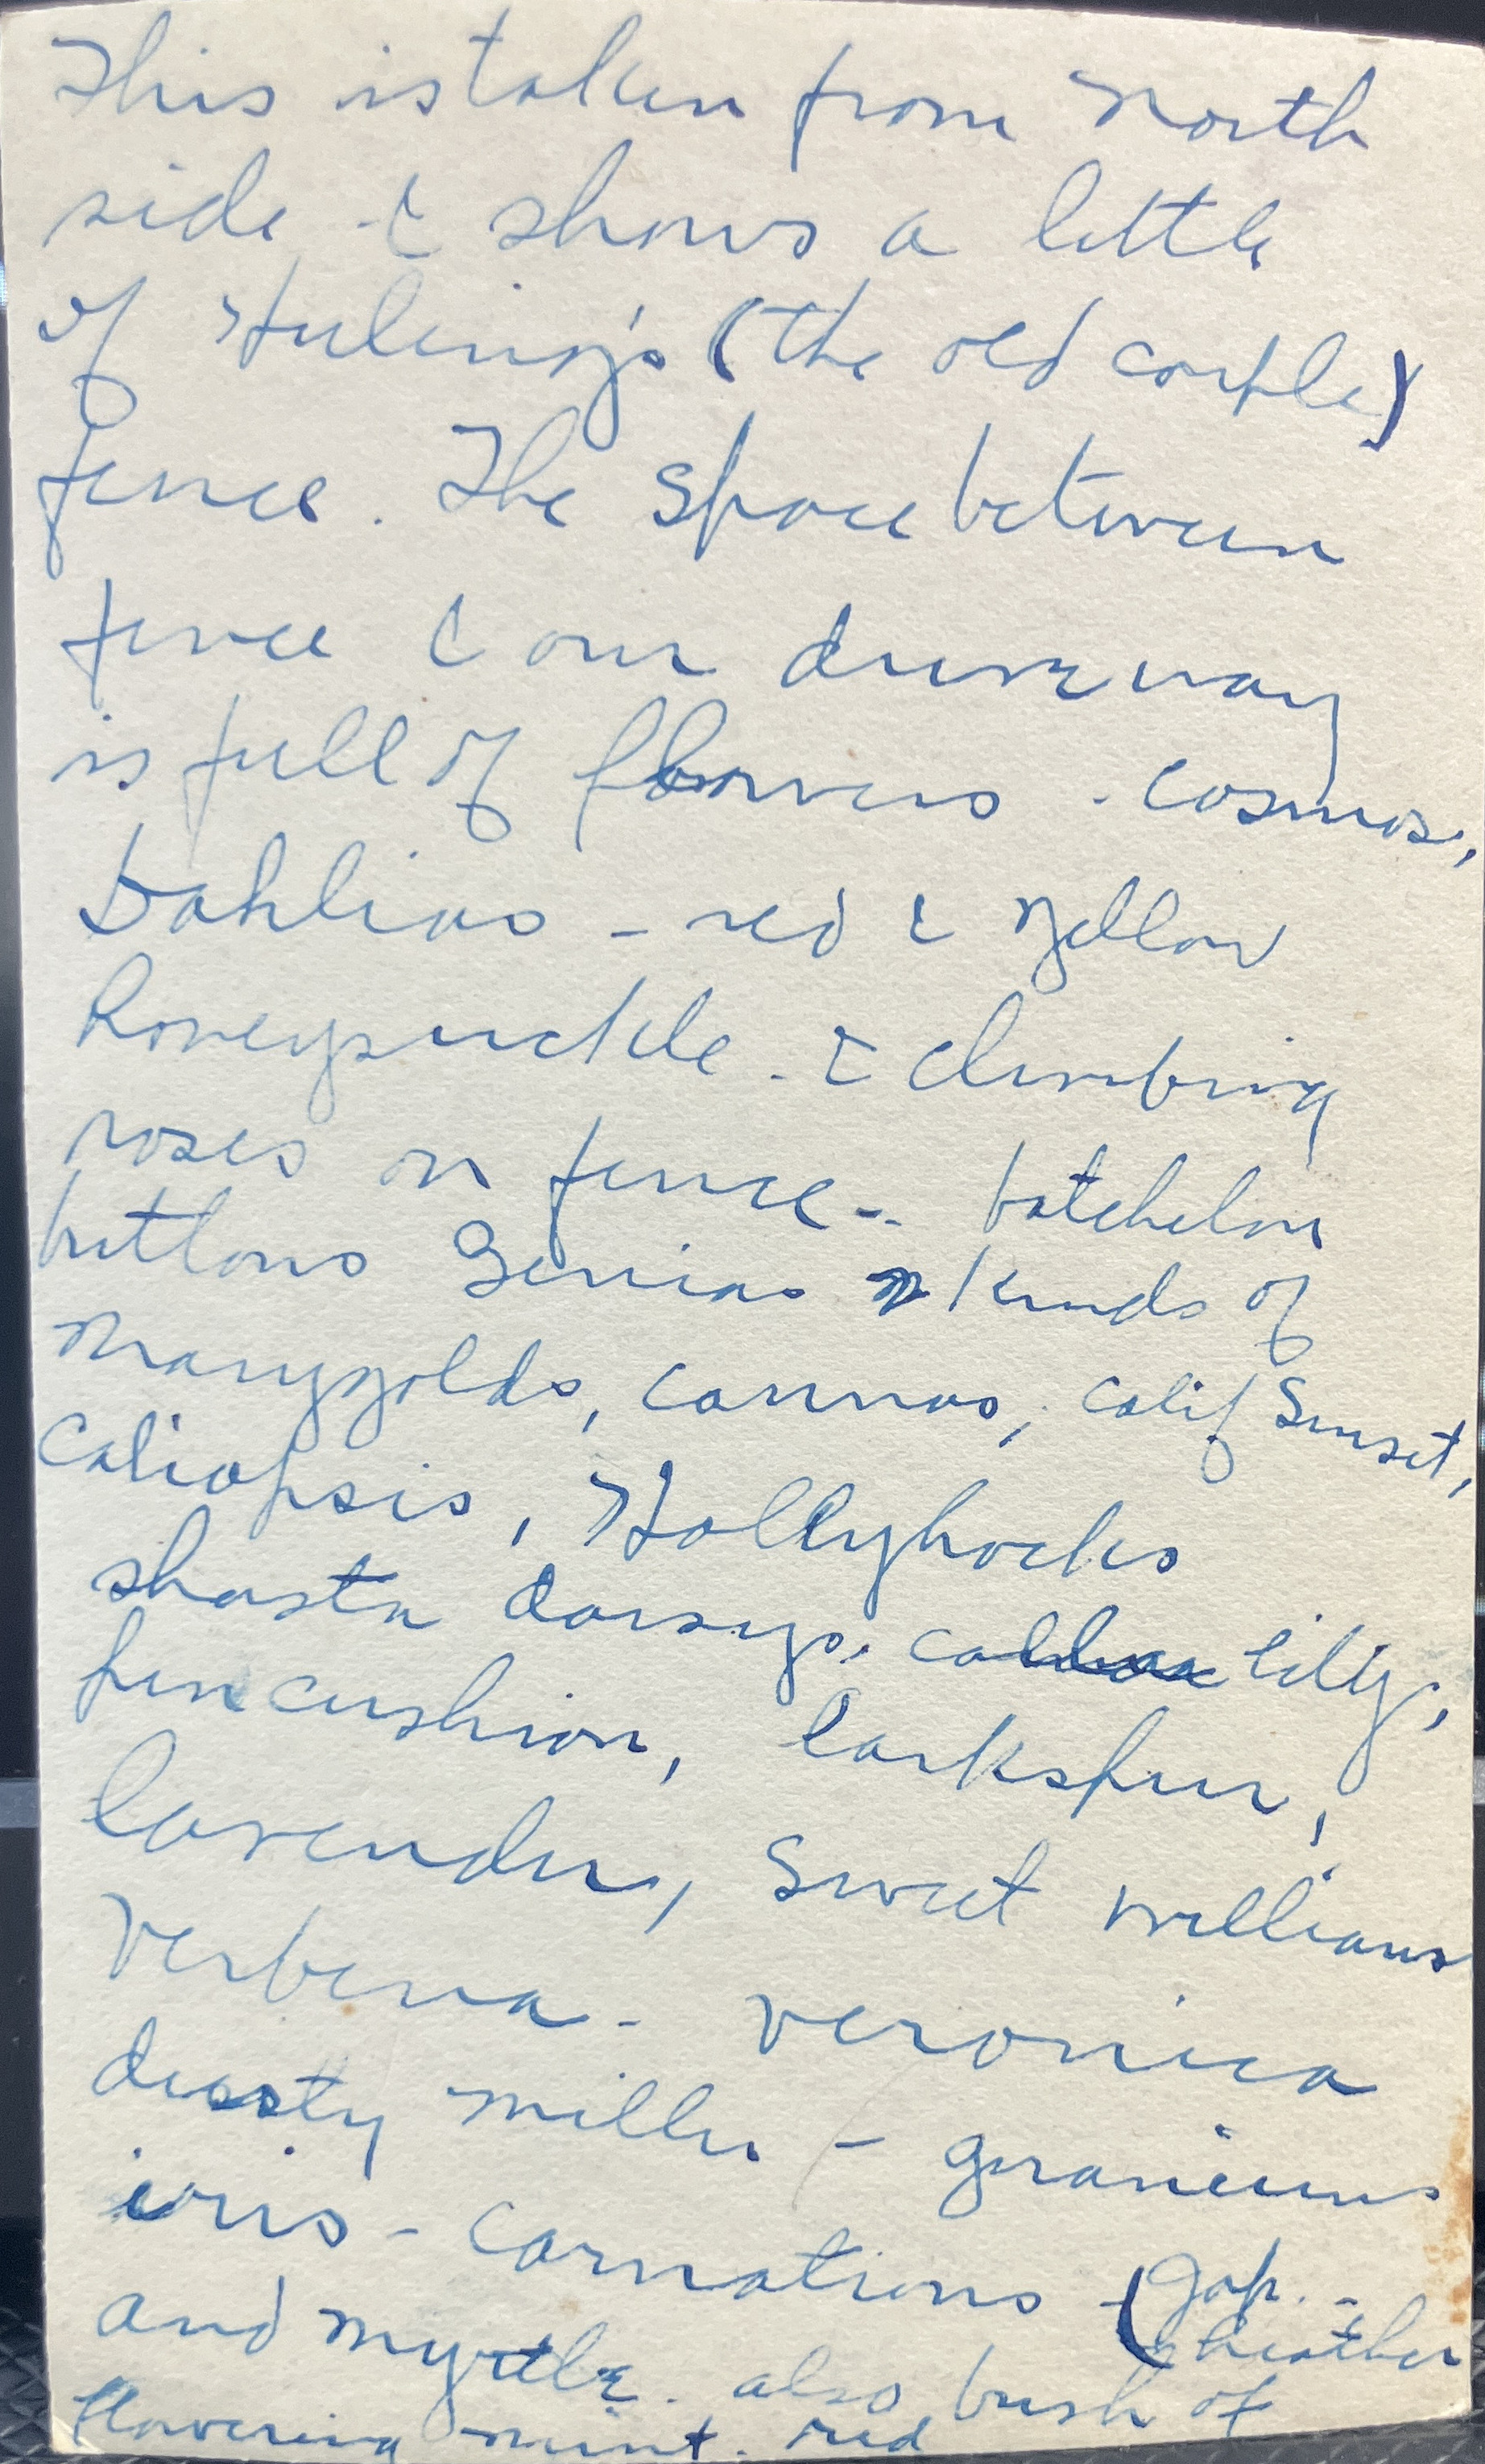 This is taken from North
side & shows a little
of Huling's (the old couple)
fence. The space between
fence & our driveway
is full of flowers - cosmos,
Dahlias - red & yellow
honeysuckle - & climbing
roses on fence - batchelor
buttons Zenias kinds of
Marygolds, cannas, calif Sunset,
caliopsis, Hollyhocks
shasta daisys, calla lilly,
pincushion, larkspur,
lavender, sweet williams
Verbena - veronica
dusty miller - geraniums
iris - carnations (Jap. -
and myrtle. also bush of heather
flowering mint. red